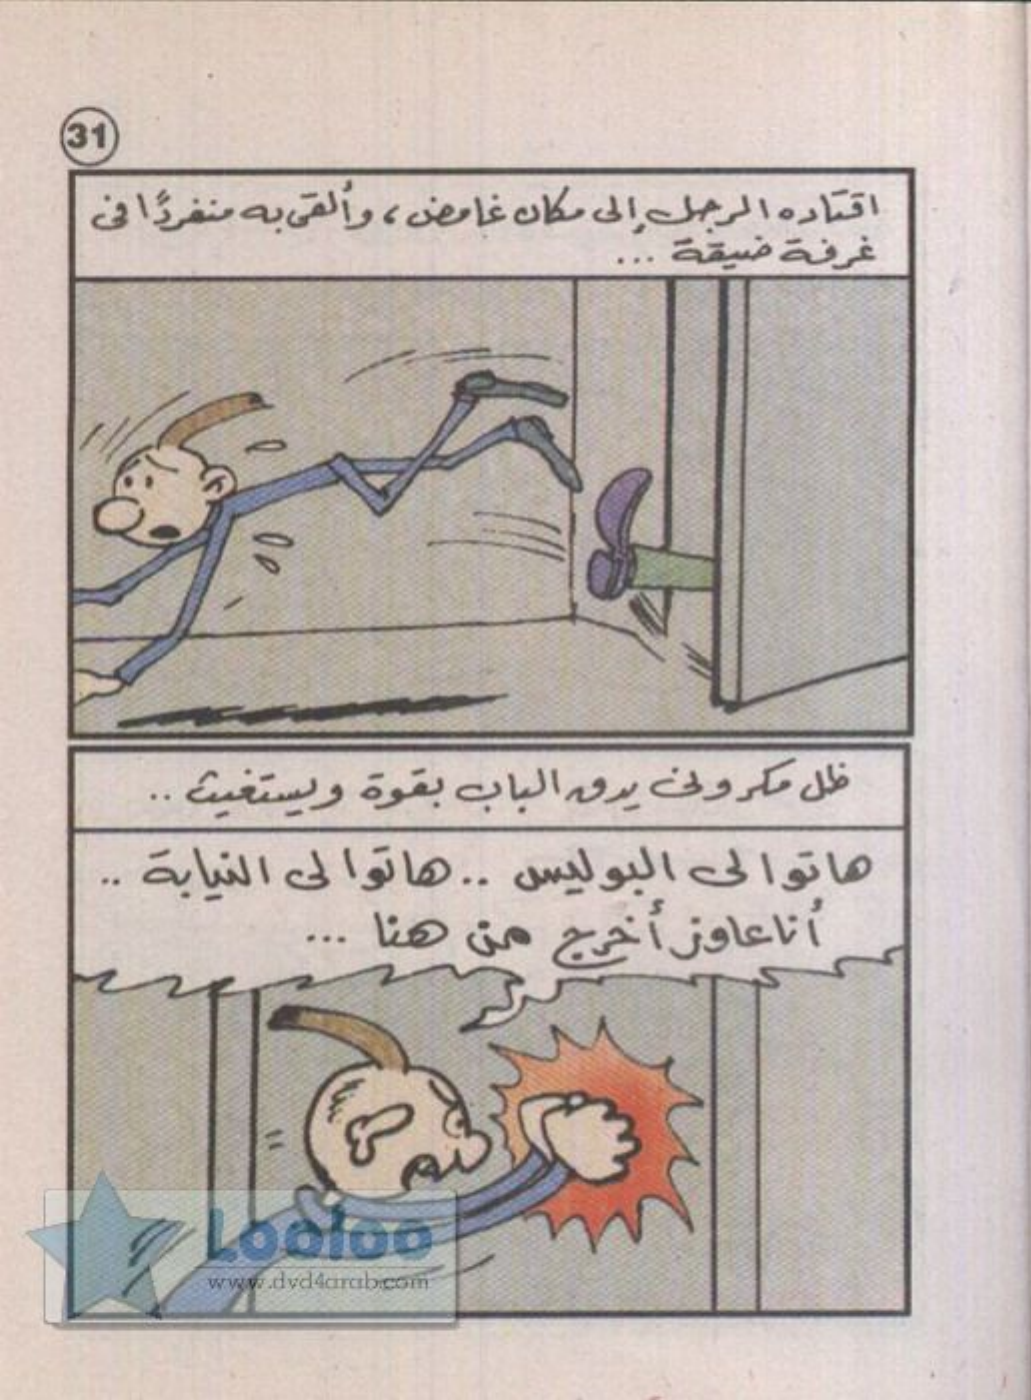 31
اقتاده الرجل إلى مكان غامض، وألقى به منفردًا فى
غرفة ضيقة ...
ظل مكرونى يدق الباب بقوة ويستغيث ..
هاتوا لى البوليس .. هاتوا لى النيابة ..
أنا عاوز أخرج من هنا ...
Looloo
www.dvd4arab.com